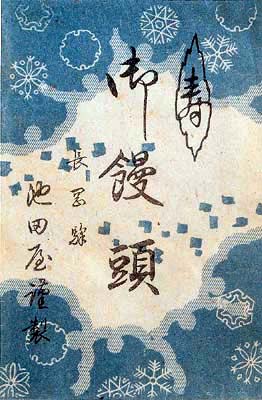 寿
御饅頭
長岡驛
池田屋謹製